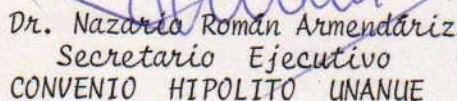 Dr. Nazario Román Armendáriz
Secretario Ejecutivo
CONVENIO HIPOLITO UNANUE